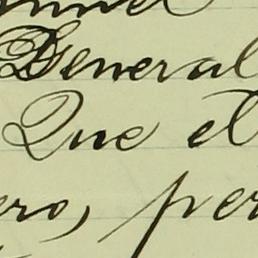 General
Que el
ero, per